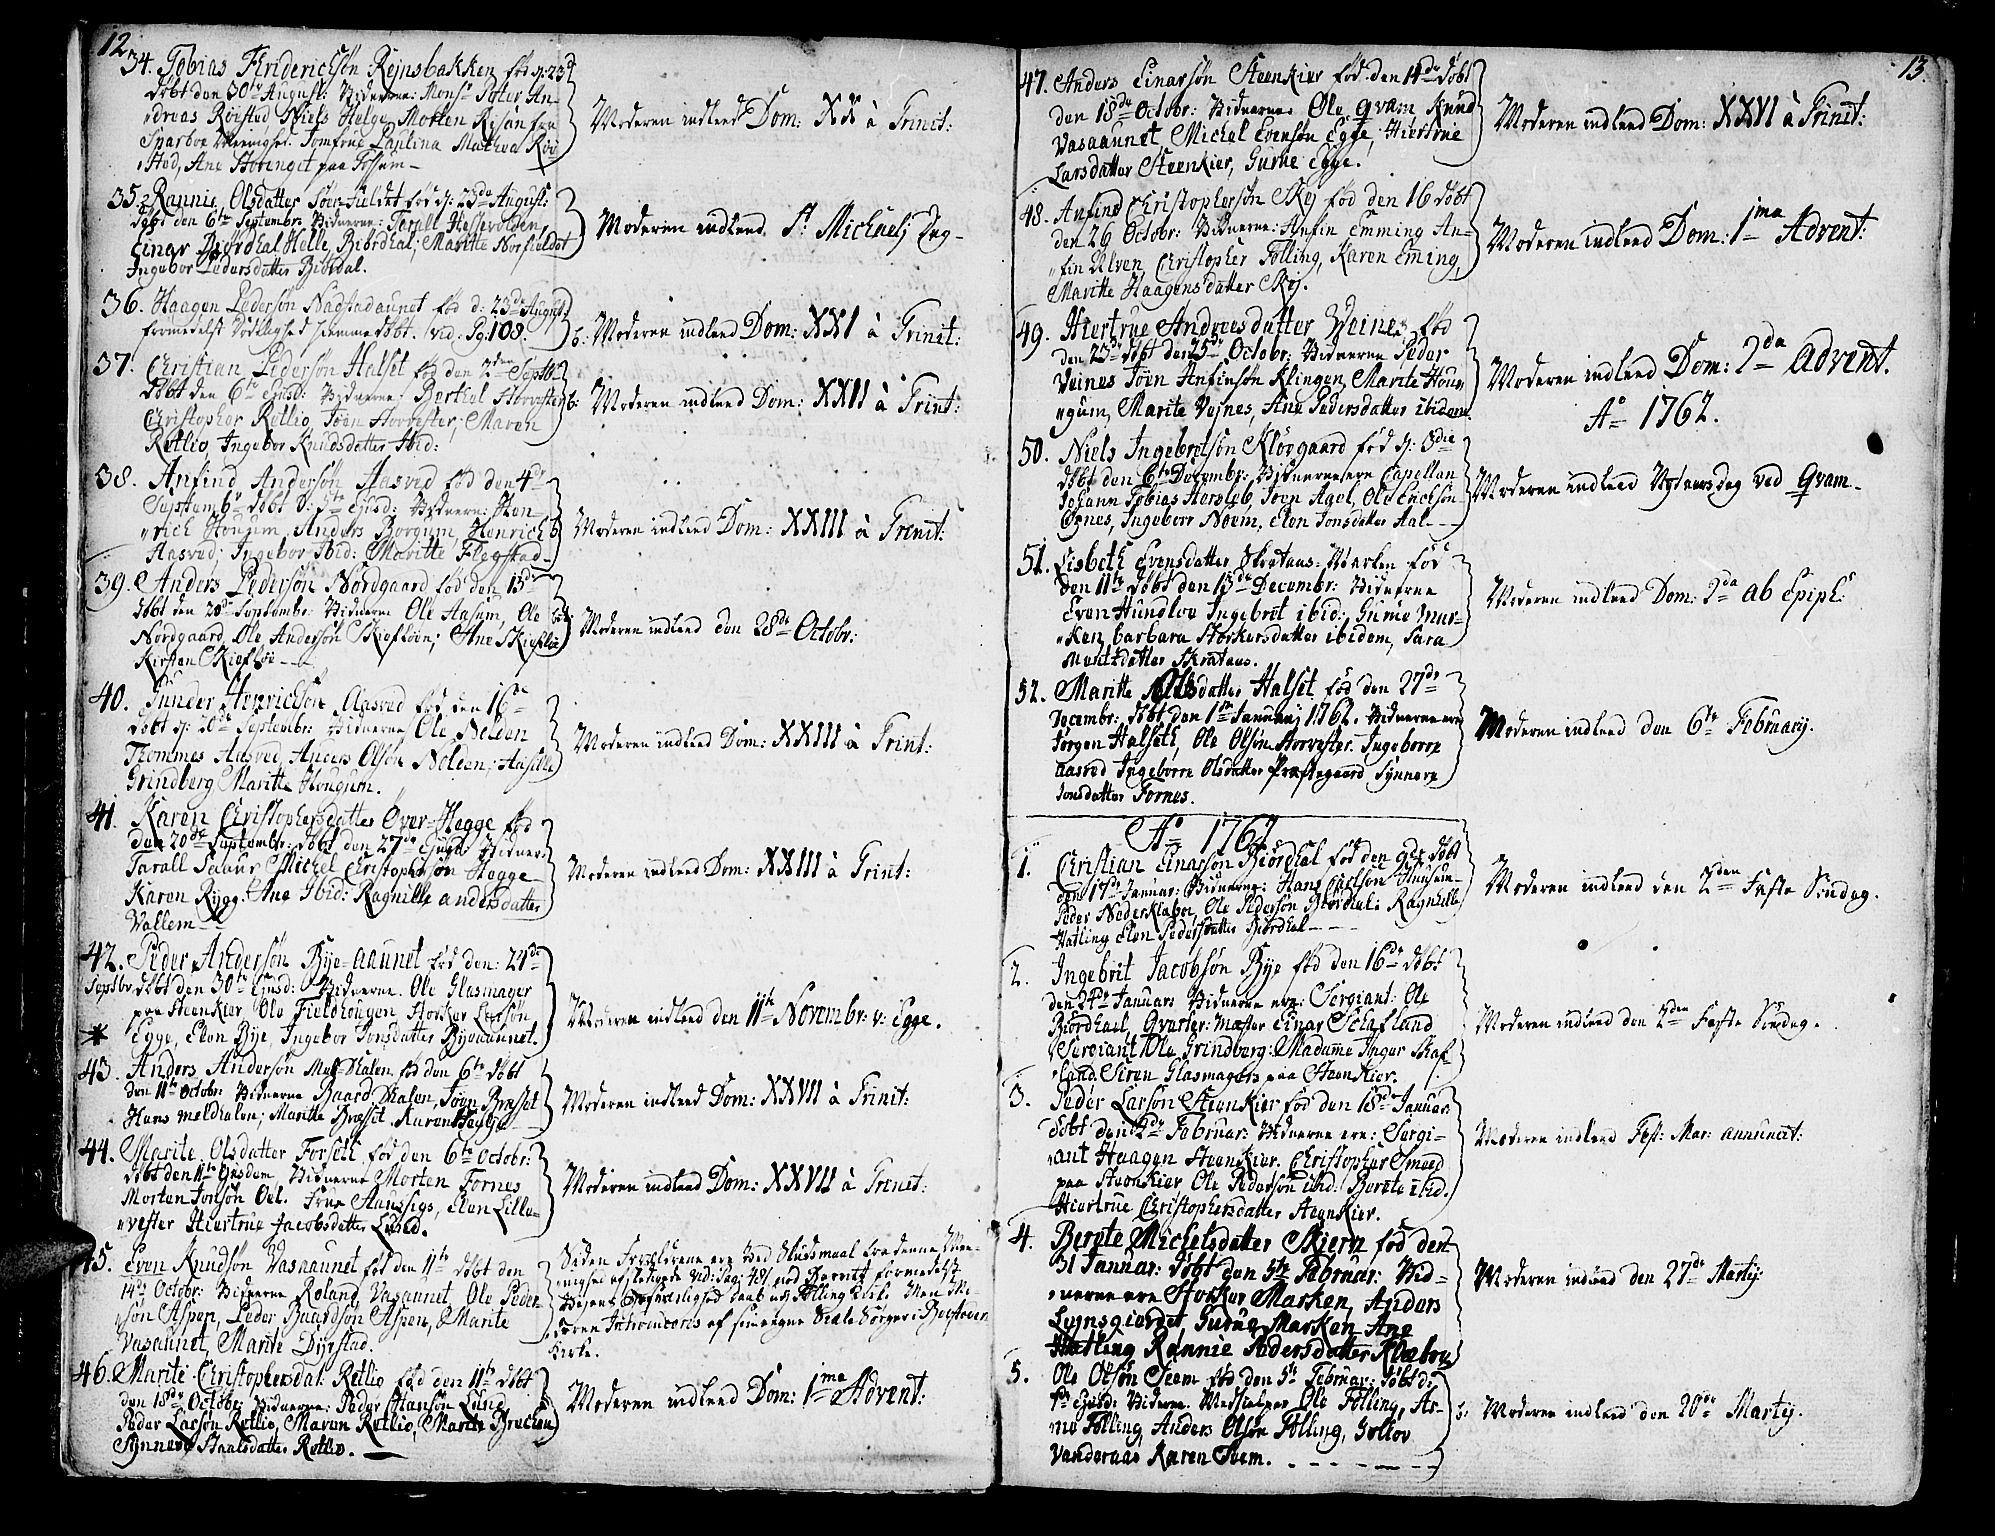 12
34. Tobias Friderichsön Rejnsbakken fød d: 23d
døbt den 30te August: Vidnerne: Monsr Peter An-
dreas Röistad Niels Helge, Morten
Sparboe Jomfrue Paulina
Ane Storenget paa Fossum -
Moderen indleed Dom: XX à Trinit:
35. Rannie Olsdatter fød d: 23de August:
døbt den 6te Septembr: Vidnerne: Tarall
Einar Biördhal Helle, Biördhal; Maritte
Ingebor Pedersdatter Biördal.
Moderen indleed St Michaels Dag -
36. Haagen Pedersøn fød d: 23de August
formedelst hjemmedøbt. vid: Pg: 108.
Moderen indleed Dom: XXI à Trinit:
37. Christian Pedersøn Halset fød den 2den Septb-
døbt den 6te Ejusd: Vidnerne: Berthel Storvester
Christopher Retlio, Joen Storvester, Maren
Retlio, Ingebor Knudsdatter Ibid:
Moderen indleed Dom: XXII à Trinit:
38. Anfind Andersøn Aasved fød den 4de
Septembr døbt d: Ejusd: Vidnerne: Hen-
rich Hougum Anders Borgum, Henrich
Aasved; Ingebor Ibid: Maritte Flegstad
Moderen indleed Dom: XXIII à Trinit:
39. Anders Pedersøn Nordgaard fød den 13de
døbt den 20de Septembr: Vidnerne Ole Aasum, Ole
Nordgaard, Ole Andersøn Skiefloen; Ane Skiefloe
Kirsten Skiefloe - - -
Moderen indleed den 28de Octobr:
40. Gunder Henrichsøn Aasved fød den 16de
døbt d: 20de Septembr: Vidnerne Ole Nelden
Thommes Aasved, Anders Olsøn Nolden;
Grindberg Maritte Hougum.
Moderen indleed Dom: XXIII à Trinit:
41. Karen Christophersdatter Over-Hegge fød
den 20de Septembr: døbt den 27de Ejusd: Vidner:
Tarall Michel Christophersøn Hegge
Karen Rygg. Ane Ibid: Ragnille andersdatter
Vallem -
Moderen indleed Dom: XXIII à Trinit:
42. Peder Andersøn Bye-aaunet fød den: 21de
Septbr døbt den 30te Ejusd: Vidnerne. Ole Glasmager
paa Steenkier, Ole Fieldhougen Storker Larsøn
* Egge, Elen Bye, Ingebor Jonsdatter Byeaaunet.
Moderen indleed den 11te Novembr: v: Egge.
43. Anders Andersøn fød den 6te døbt
den 11te Octobr: Vidnerne Baard Halen, Joen Bræset
Hans Melhalen; Maritte Bræset Karen
Moderen indleed Dom: XXVII à Trinit:
44. Marite Olsdatter Forseth fød den 6te Octobr:
døbt den 11te Ejusdem Vidnerne Morten Fornes
Morten Jonsøn Oel. Frue Elen Lille-
vester Hiertrue Jacobsdatter Lund.
Moderen indleed Dom: XXVII à Trinit:
45. Even Knudsøn Vasaaunet fød den 11te døbt den
14de Octobr: Vidnerne Roland Vasaaunet, Ole Peder-
søn Aspen, Peder Baardsøn Aspen, Marite
Vasaunet, Marite Dyrstad.
Siden Forældrene ere ved Skudsmaal fra denne Me-
nighed Vid: Pag: 401
Baab udj Følling Kirke Men
af sin egne Siæle Sørger i
Kirke.
46. Marite Christophersdat: Retlio fød den 11te døbt
den 18de Octobr: Vidnerne: Peder Hansøn Lund
Peder Larsøn Retlio, Maren Retlio, Marite
Synneve Retlio.
Moderen indleed Dom: 1ma Advent:
13.
47. Anders Einarsøn Steenkier fød den 14de døbt
den 18de Octobr: Vidnerne Ole qvam Knud
Vasaaunet Michel Evensøn Egge, Hiertrue
Larsdatter Steenkier, Gurue Egge.
Moderen indleed Dom: XXVI à Trinit:
48. Anfind Christophersøn Skej fød den 16 døbt
den 26 Octobr: Vidnerne: Anfin Emming An-
fin Ulven, Christopher Følling, Karen Eming,
Maritte Haagensdatter Skej.
Moderen indleed Dom: 1ma Advent:
49. Hiertrue Andreesdatter Veines fød
den 23de døbt den 25de Octobr: Vidnerne Peder
Veines Joen Anfinsøn Klingen, Marite Hou-
gum, Marite Vejnes, Ane Pedersdatter ibidem.
Moderen indleed Dom: 2da Advent.
Ao 1762.
50. Niels Ingebretsøn Klövgaard fød d: 3die
døbt den 6te Decembr: Vidnerne ere Capellan
Johann Tobias Hersleb, Joen Agel, Ole Erichsøn
Oxnes, Ingeborr Noem, Elen Jonsdatter Aal - -
Moderen indleed Nytaarsdag ved qvam -
51. Lisbeth Evensdatter fød
den 11te døbt den 13de Decembr: Vidnerne
Even Hundloe Ingebret ibid: Gurue Mar-
ken, barbara Storkersdatter ibidem, Sara
Skrataas.
Moderen indleed Dom: 2da ab Epiph:
52. Maritte Olsdatter Halset fød den 27de
Decembr: døbt den 1te Januarij 1762. Vidnerne ere
Jørgen Halseth, Ole Olsøn Storvester. Ingeborre
aasved Ingeborre Olsdatter Præstegaard Synnere
Jonsdatter Fornes.
Moderen indleed den 6te Februarij.
Ao 1762
1. Christian Einarsøn Biördhal fød den 9de døbt
den 17de Januar: Vidnerne: Hans Carlsøn
Peder Nederklabe, Ole Pedersøn Biördhal: Ragnhille
Hatling Elen Pedersdatter Biördhal - - -
Moderen indleed den 2den Faste Søndag.
2. Ingebrit Jacobsøn Bye fød den 16de døbt
den 24de Januari Vidnerne ere: Sergiant: Ole
Biördhael, Qvarteer-Mæster Einar Schafland
Sergiant Ole Grindberg: Madame Inger Skaf-
land, Siren Glasmagers paa SteenKier.
Moderen indleed den 2den Faste Søndag.
3. Peder Larsøn SteenKier fød den 18de Januar:
døbt den 2de Februar: Vidnerne ere: Sergi-
ant Haagen SteenKier. Christopher Smeed
paa SteenKier Ole Pedersøn ibid: Berete ibid.
Hiertrue Christophersdatter SteenKier.
Moderen indleed Fest: Mar: annunciat:
4. Berete Michelsdatter Skierv fød den
31 Januar: døbt den 5te Februar: Vid-
nerne ere Storker Marken, Anders
Lejnsgierdet Gurue Marken Ane
Hatling Rønnie Pedersdatter
Moderen indleed den 27de Martij
5. Ole Olsøn Seem fød den 5te Februar: døbt d:
7de Ejusd: Vidnerne. Ole Følling, Ar-
ne Følling, Anders Olsøn Følling, Goltov
Vanderaas Karen Seem. - - - - -
Moderen indleed den 20de Martij.